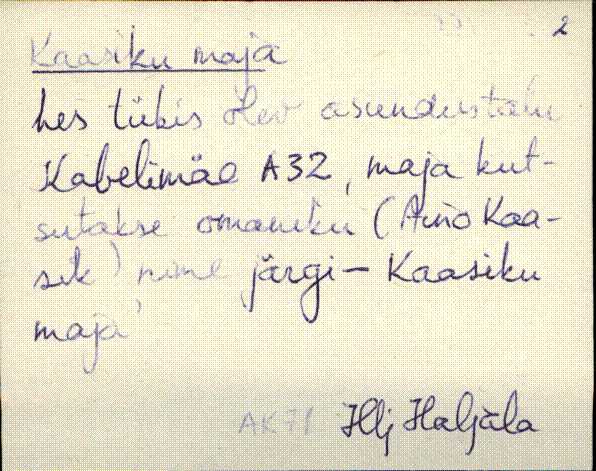 2
Kaasiku maja
hes tükis olev asundustalu
Kabelimäe A32, maja kut-
sutakse omaniku (Aino Kaa-
sik) nime järgi – Kaasiku
maja
AK71 Hlj Haljala